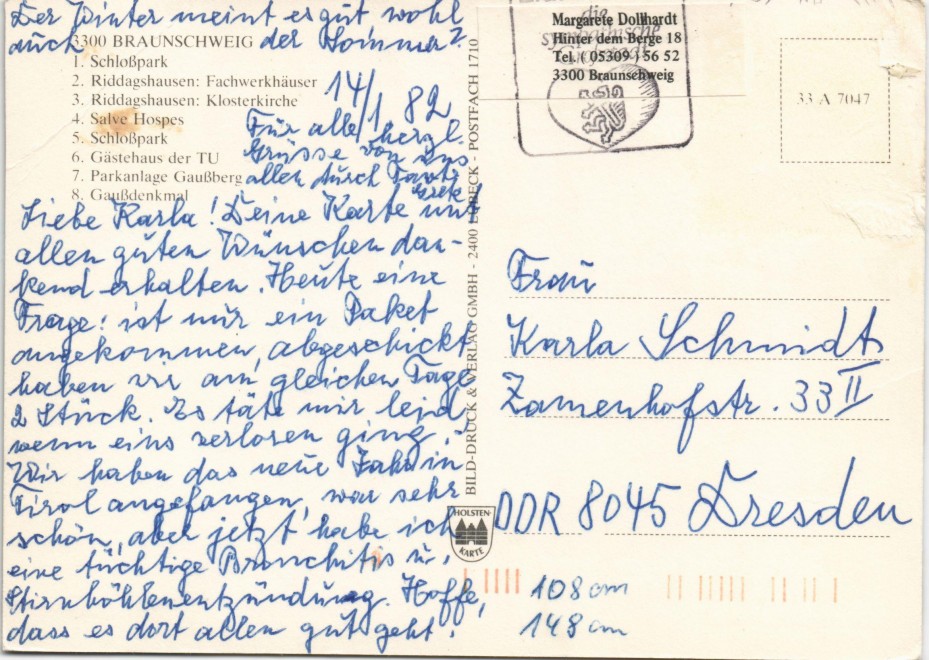 Der Winter meint es gut wohl
auch der Sommer?
3300 BRAUNSCHWEIG
1. Schloßpark
2. Riddagshausen: Fachwerkhäuser
3. Riddagshausen: Klosterkirche
4. Salve Hospes
5. Schloßpark
6. Gästehaus der TU
7. Parkanlage Gaußberg
8. Gaußdenkmal
14/1 82
Für alle herzl.
Grüsse von uns
allen durch Tante
Grete
Liebe Karla! Deine Karte mit
allen guten Wünschen dan-
kend erhalten. Heute eine
Frage: ist nur ein Paket
angekommen, abgeschickt
haben wir am gleichen Tage
2 Stück. Es täte mir leid
wenn eins verloren ging.
Wir haben das neue Jahr in
Tirol angefangen, war sehr
schön, aber jetzt habe ich
eine tüchtige Bronchitis u.
Stirnhöhlenentzündung. Hoffe,
dass es dort allen gut geht.
BILD-DRUCK & VERLAG GMBH - 2400 LÜBECK - POSTFACH 1710
HOLSTEN-
KARTE
die
sympathische
Margarete Dollhardt
Hinter dem Berge 18
Tel. (05309) 56 52
3300 Braunschweig
33 A 7047
Frau
Karla Schmidt
Zamenhofstr. 33 II
DDR 8045 Dresden
108 cm
148 cm